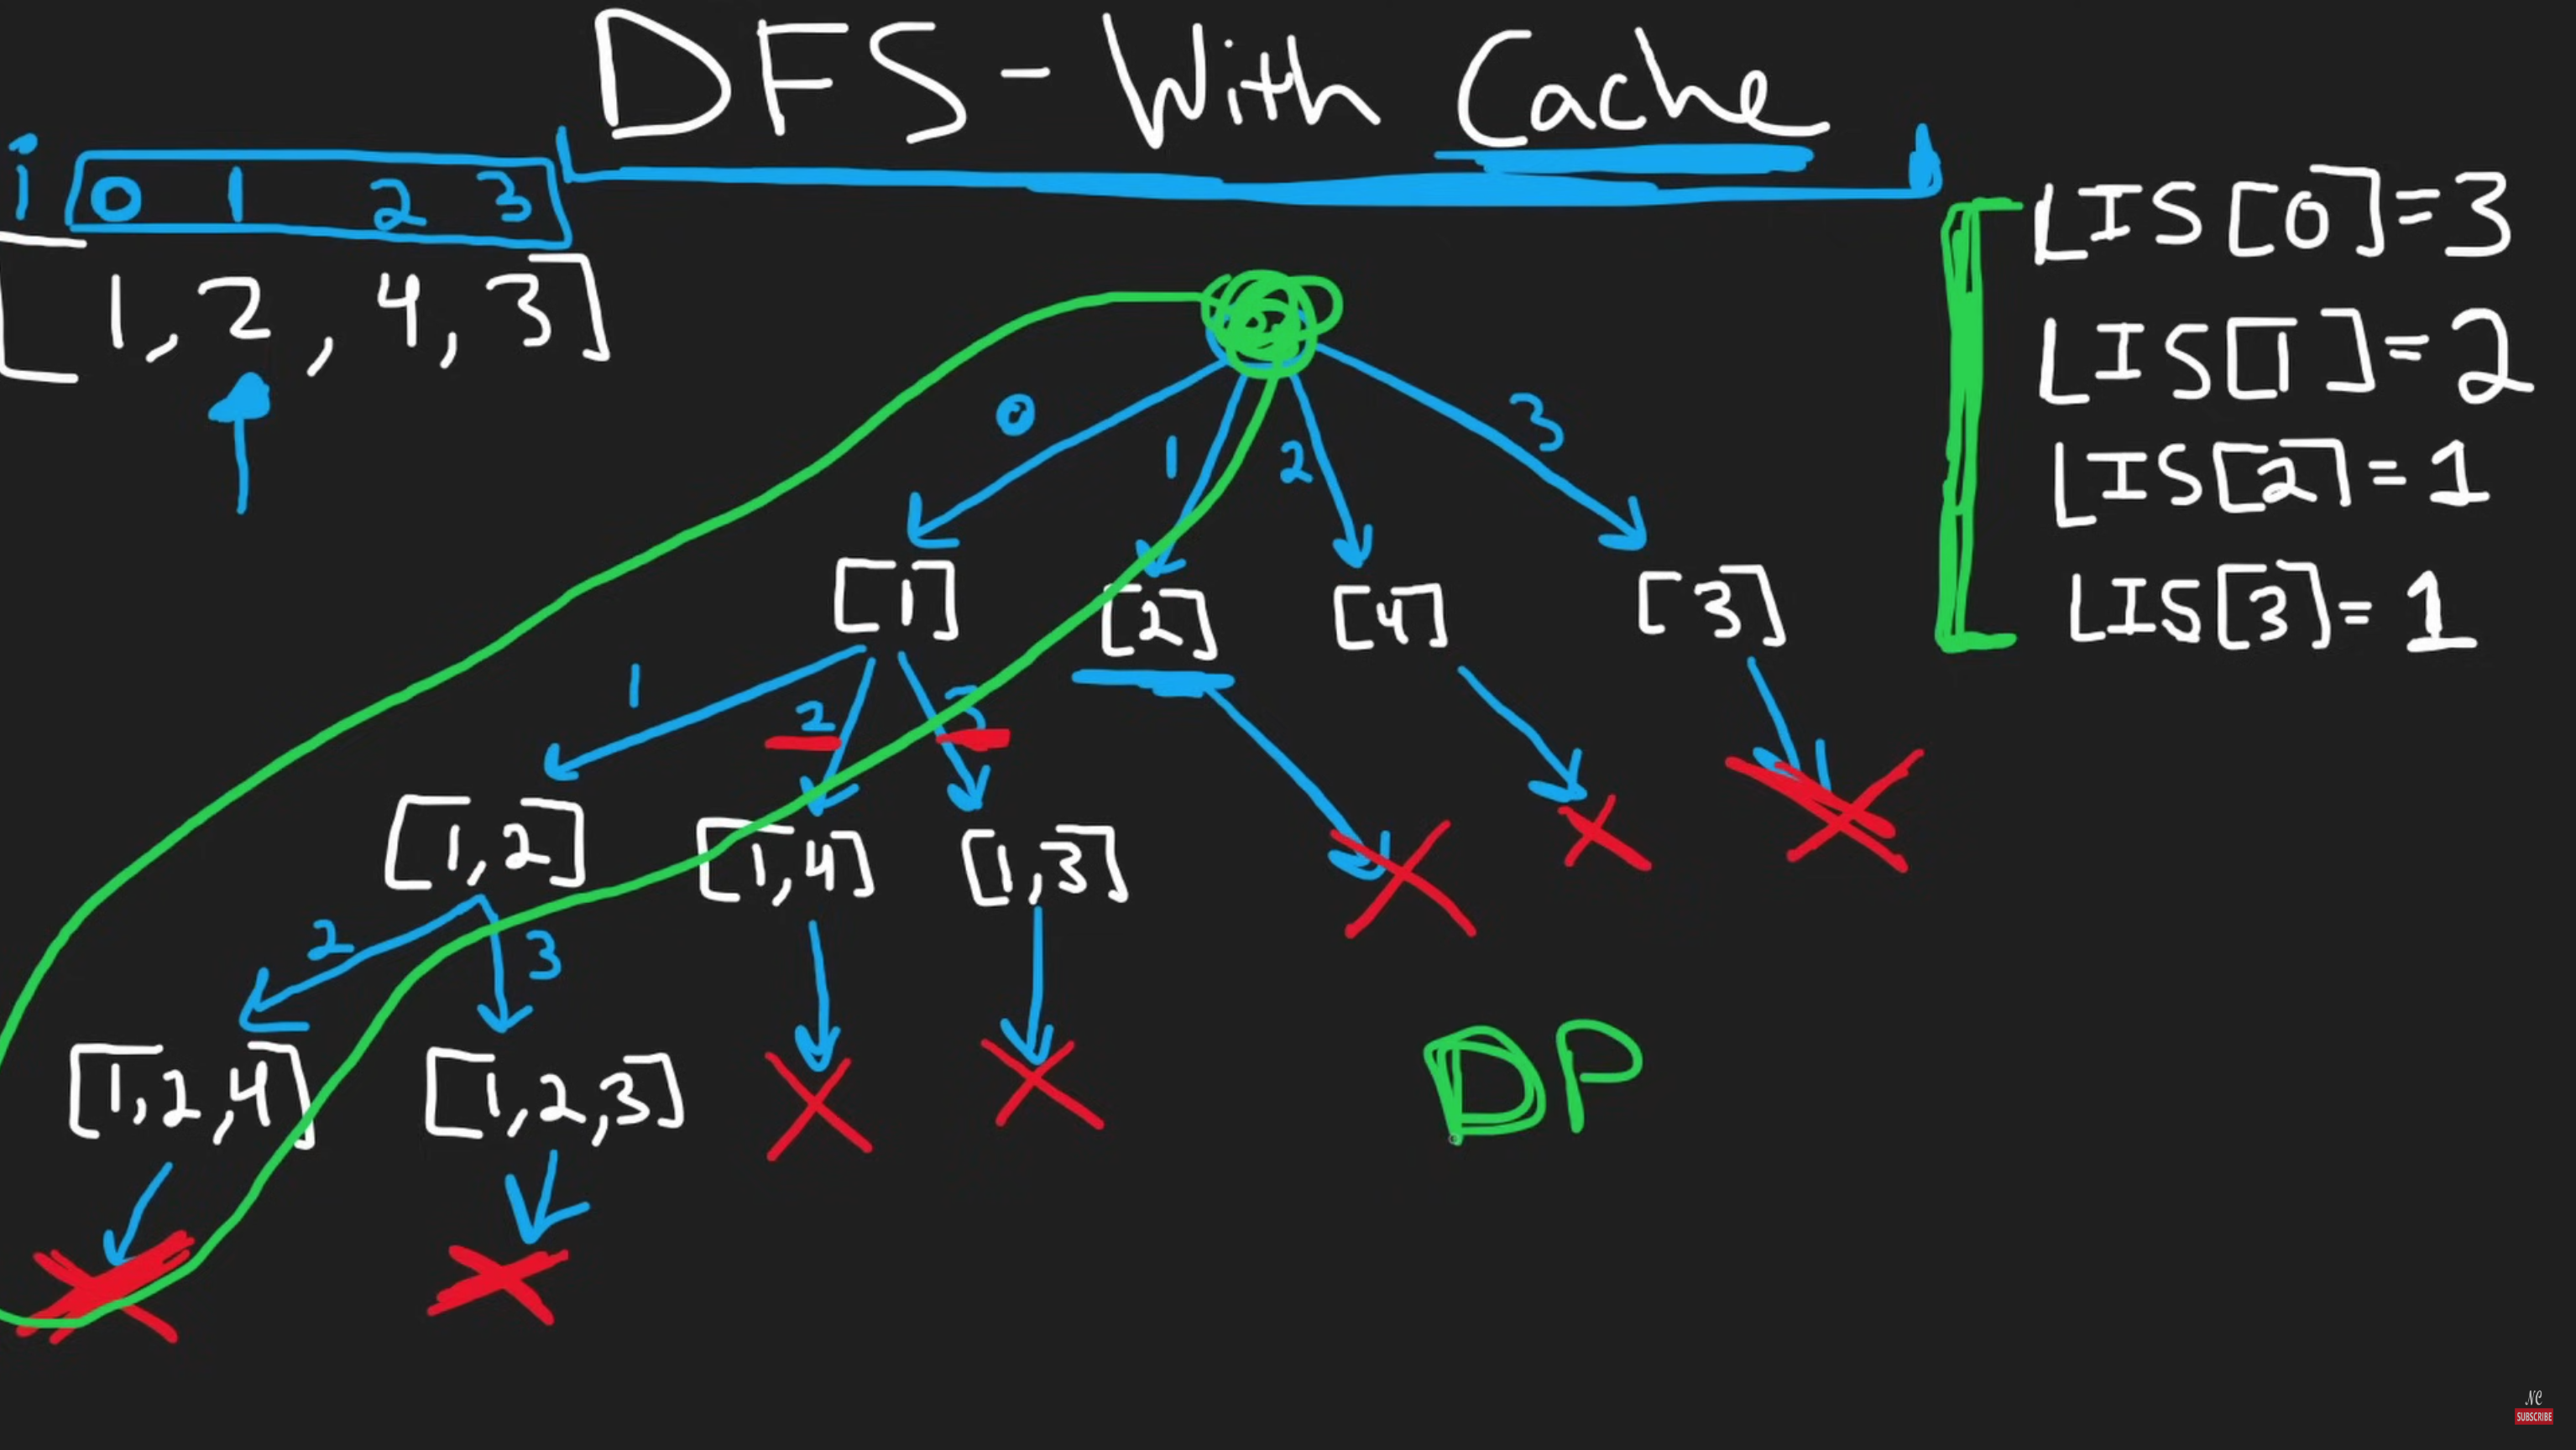 DFS - With Cache
i 0 1 2 3
[ 1, 2, 4, 3 ]
LIS[0]=3
LIS[1]=2
LIS[2]=1
LIS[3]=1
0 1 2 3
[1] [2] [4] [3]
1 2 3
[1,2] [1,4] [1,3]
2 3
[1,2,4] [1,2,3]
DP
NC
SUBSCRIBE